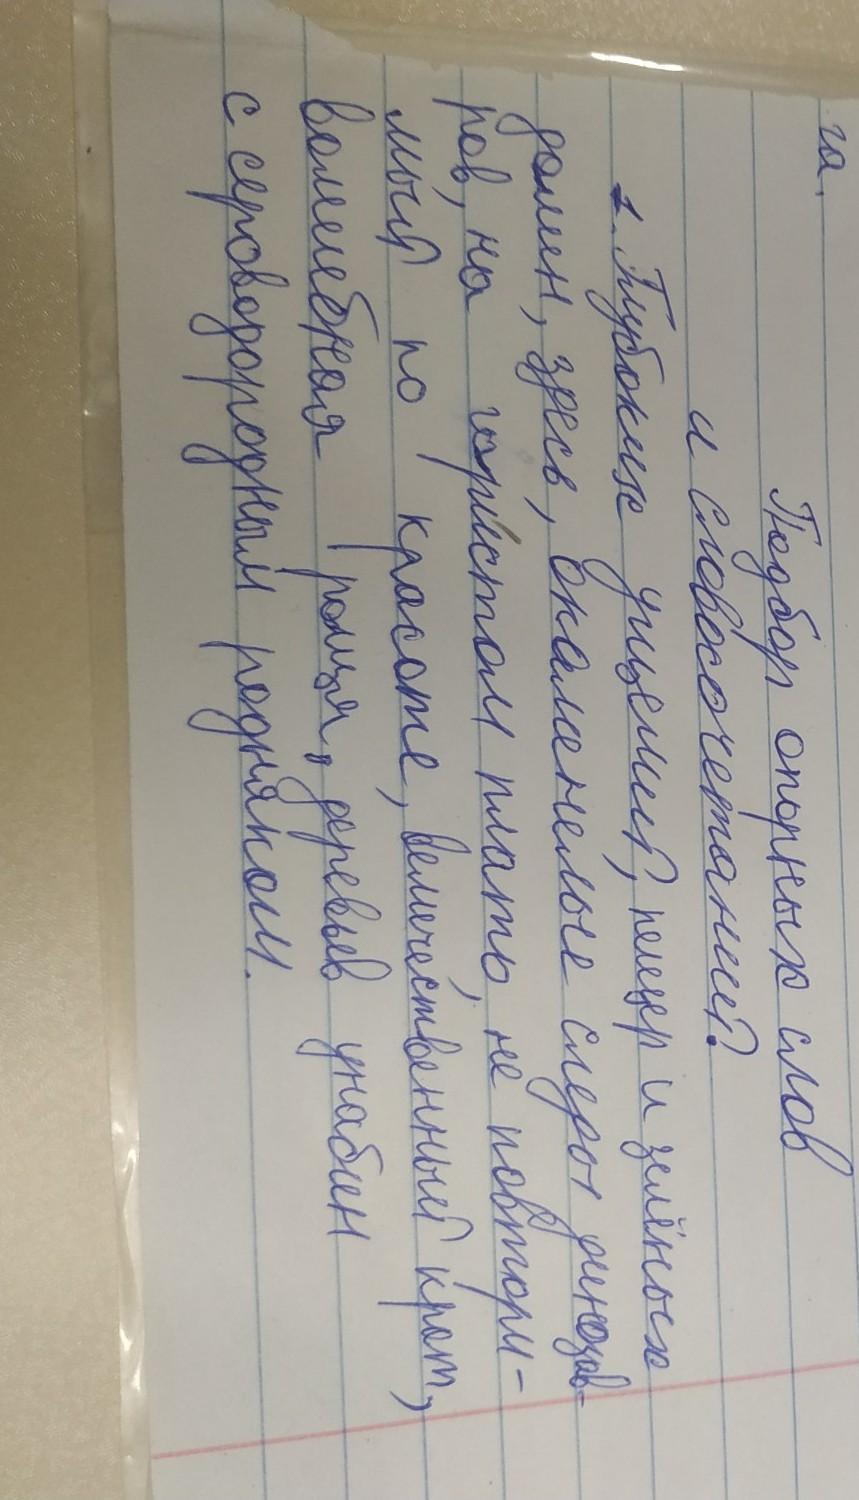 га.
Подбор опорных слов
и словосочетаний.
1. Глубоких ущелий, пещер и зелёных
долин, здесь, окаманелые следы динозав-
ров, на гористом плато, не повтори-
мый по красоте, величественный край,
волшебная роща, деревьев унабин
с сероводородным родняком.